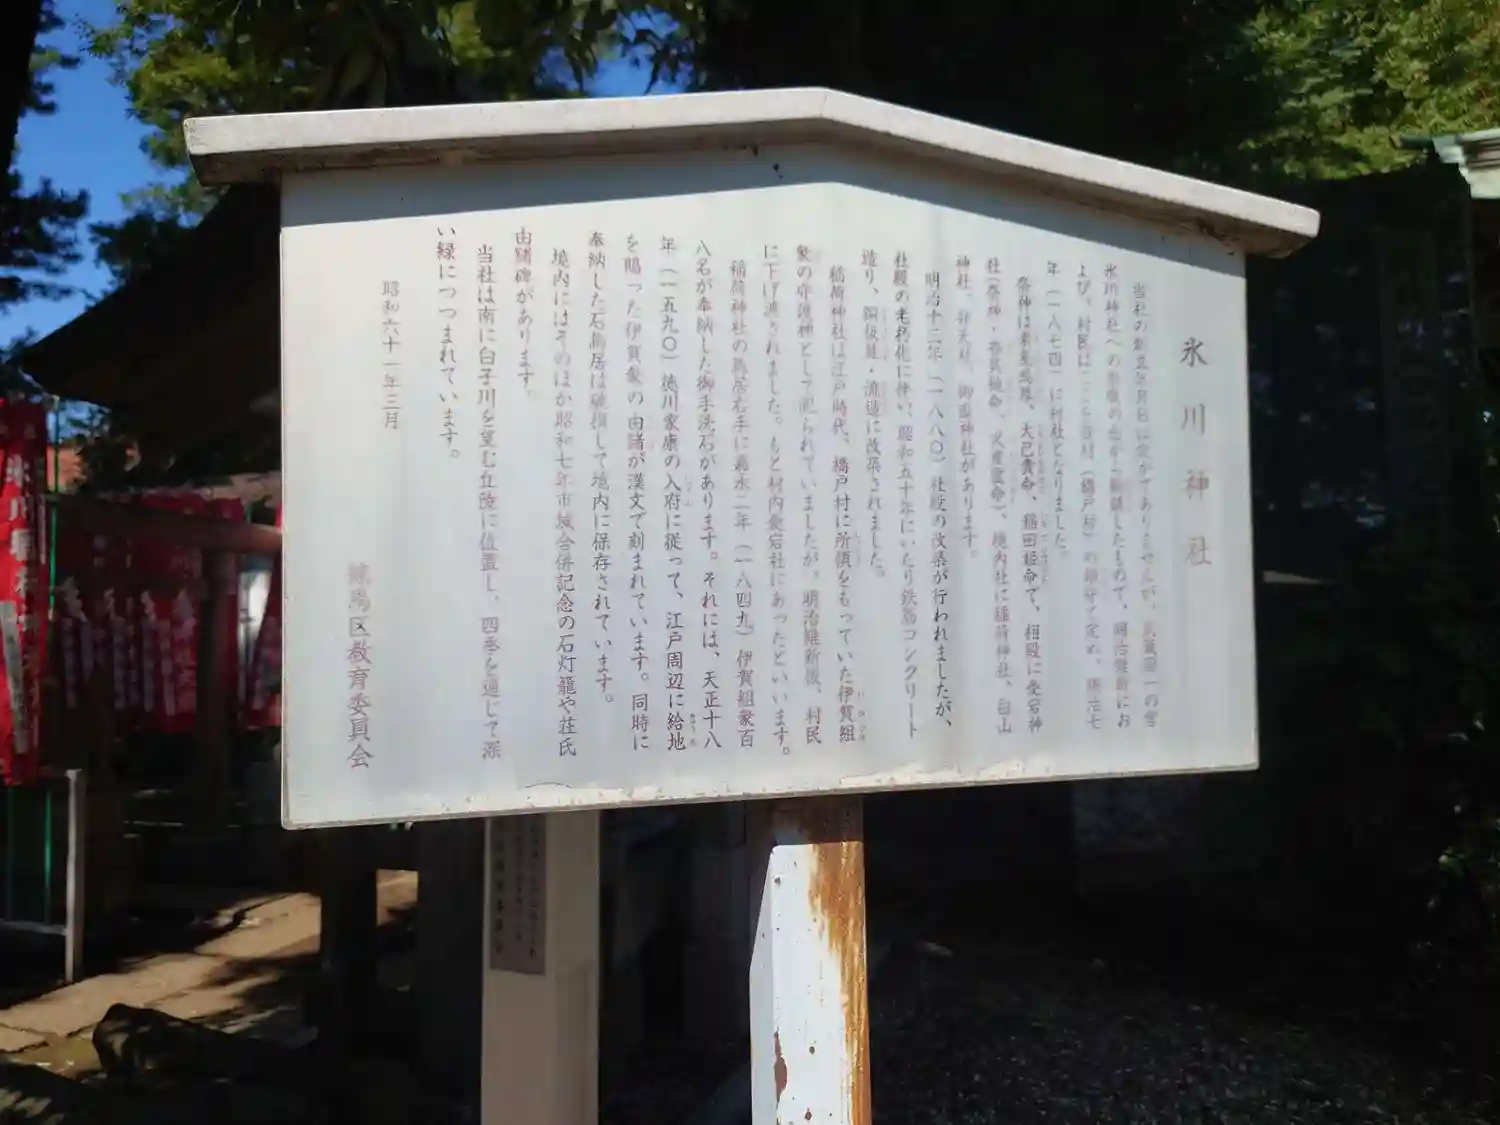 氷川神社
当社の創立年月日は定かでありませんが、武蔵国一の宮
氷川神社への参敬の念から勧請したもので、明治維新にお
よび、村民はここを当村（橋戸村）の鎮守と定め、明治七
年（一八七四）に村社となりました。
祭神は素戔嗚尊、大己貴命、稲田姫命で、相殿に愛宕神
社（祭神・命、火産霊命）、境内社に稲荷神社、白山
神社、弁天社、御嶽神社があります。
明治十三年（一八八〇）社殿の改築が行われましたが、
社殿の老朽化に伴い、昭和五十年にいたり鉄筋コンクリート
造り、銅板葺・流造に改築されました。
稲荷神社は江戸時代、橋戸村に所領をもっていた伊賀組
衆の守護神として祀られていましたが、明治維新後、村民
に下げ渡されました。もと村内愛宕社にあったといいます。
稲荷神社の鳥居右手に嘉永二年（一八四九）伊賀組衆百
八名が奉納した御手洗石があります。それには、天正十八
年（一五九〇）徳川家康の入府に従って、江戸周辺に給地
を賜った伊賀衆の由緒が漢文で刻まれています。同時に
奉納した石鳥居は破損して境内に保存されています。
境内にはそのほか昭和七年市域合併記念の石灯籠や荘氏
由緒碑があります。
当社は南に白子川を望む丘陵に位置し、四季を通じて深
い緑につつまれています。
昭和六十一年三月
練馬区教育委員会